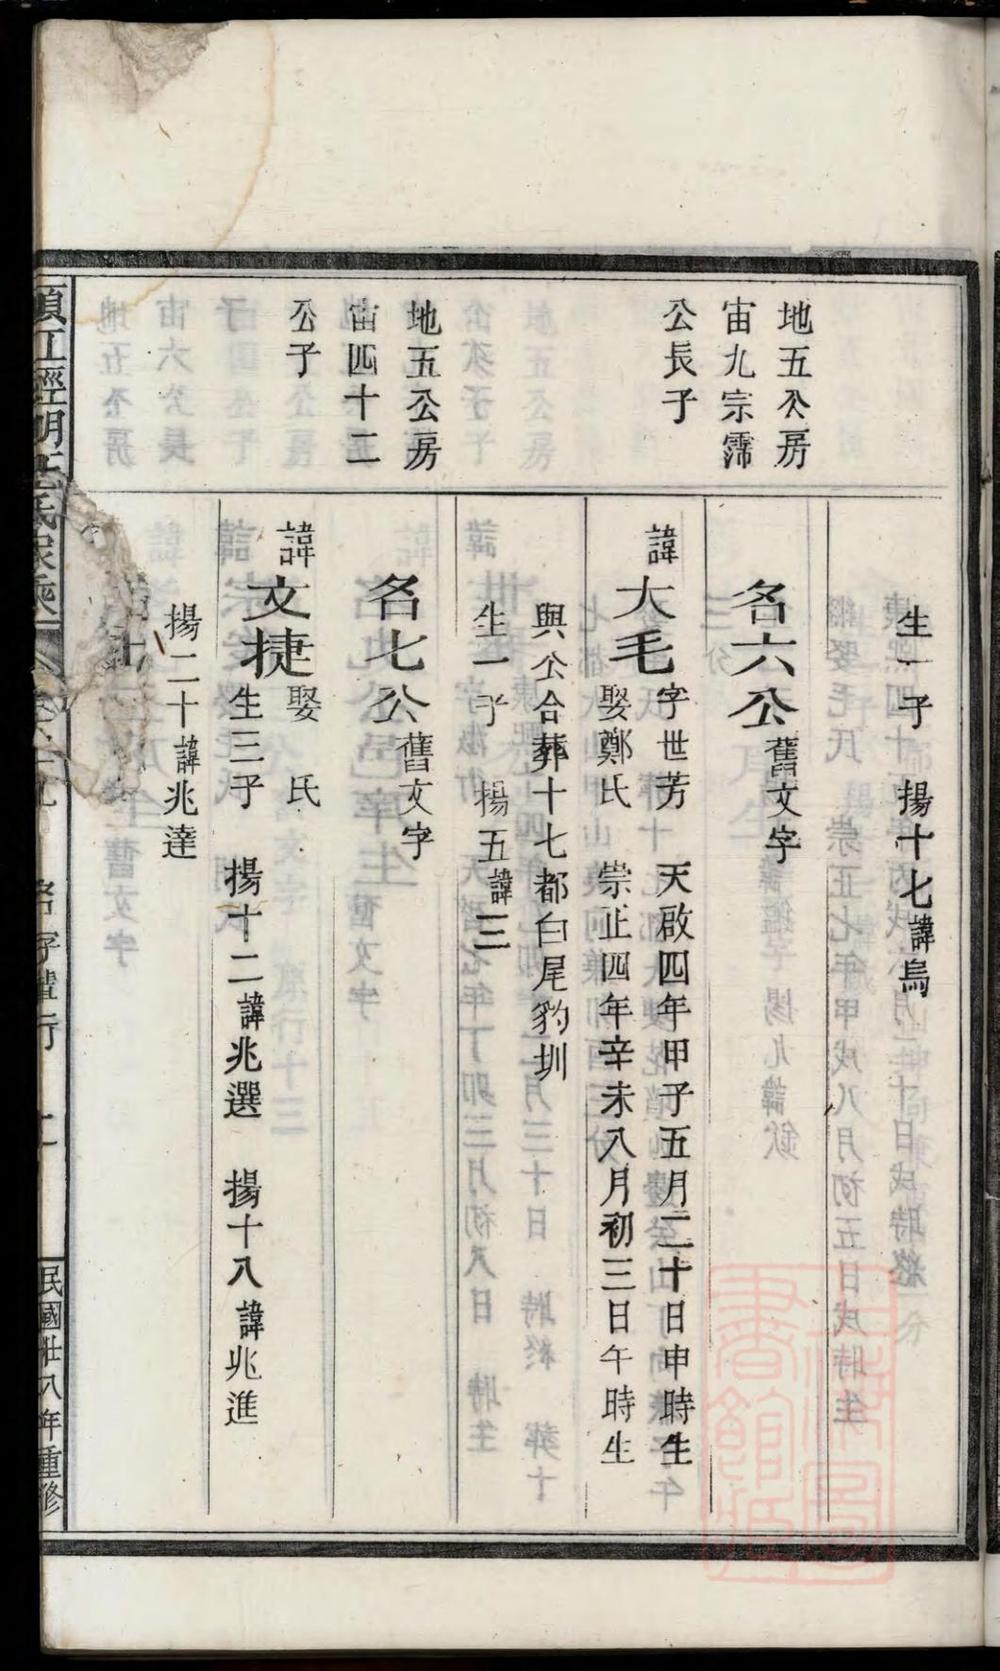 生一子 揚十七諱烏
地五公房
宙九宗霈
公長子
名六公舊文字
諱大毛字世芳 天啟四年甲子五月二十日申時生
娶鄭氏 崇正四年辛未八月初三日午時生
與公合葬十七都白尾豹圳
生一子 揚五諱三
地五公房
宙四十二
公子
名七公舊文字
諱文捷娶 氏
生三子 揚十二諱兆選 揚十八諱兆進
揚二十諱兆達
名字輩行
民國廿八年重修